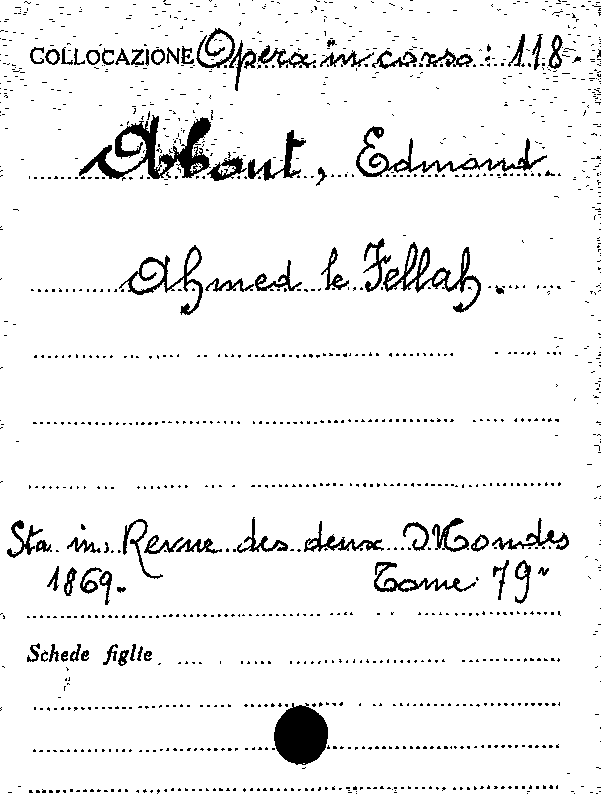 COLLOCAZIONE Opera in corso : 118.
About, Edmond.
Ahmed le Fellah.
Sta in. Revue des deux Mondes
1869. Tome 79°
Schede figlie